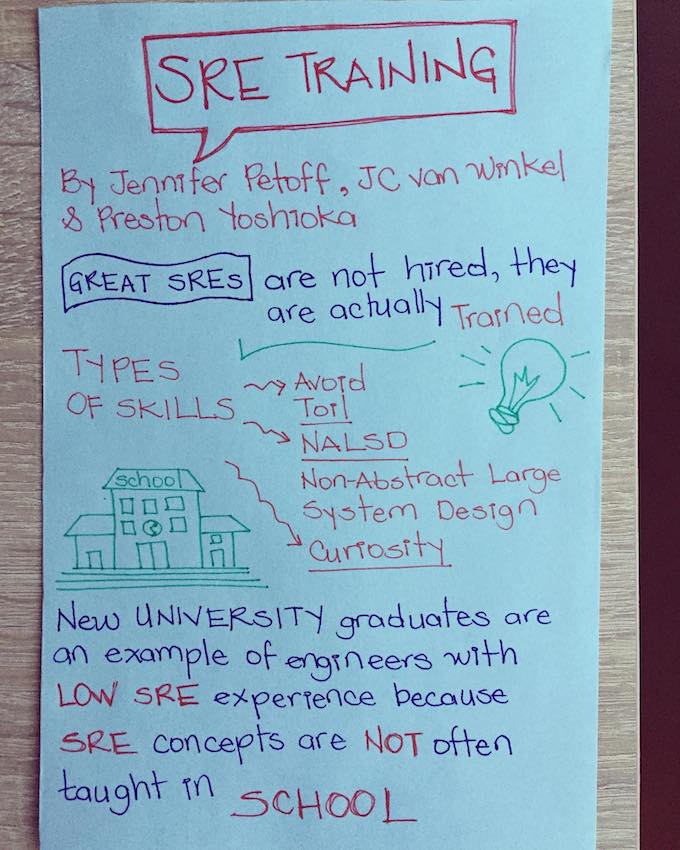 SRE TRAINING
By Jennifer Petoff, JC van Winkel
& Preston Yoshioka
GREAT SREs are not hired, they
are actually Trained
TYPES
OF SKILLS
Avoid
Toil
NALSD
Non-Abstract Large
System Design
Curiosity
school
New UNIVERSITY graduates are
an example of engineers with
LOW SRE experience because
SRE concepts are NOT often
taught in SCHOOL